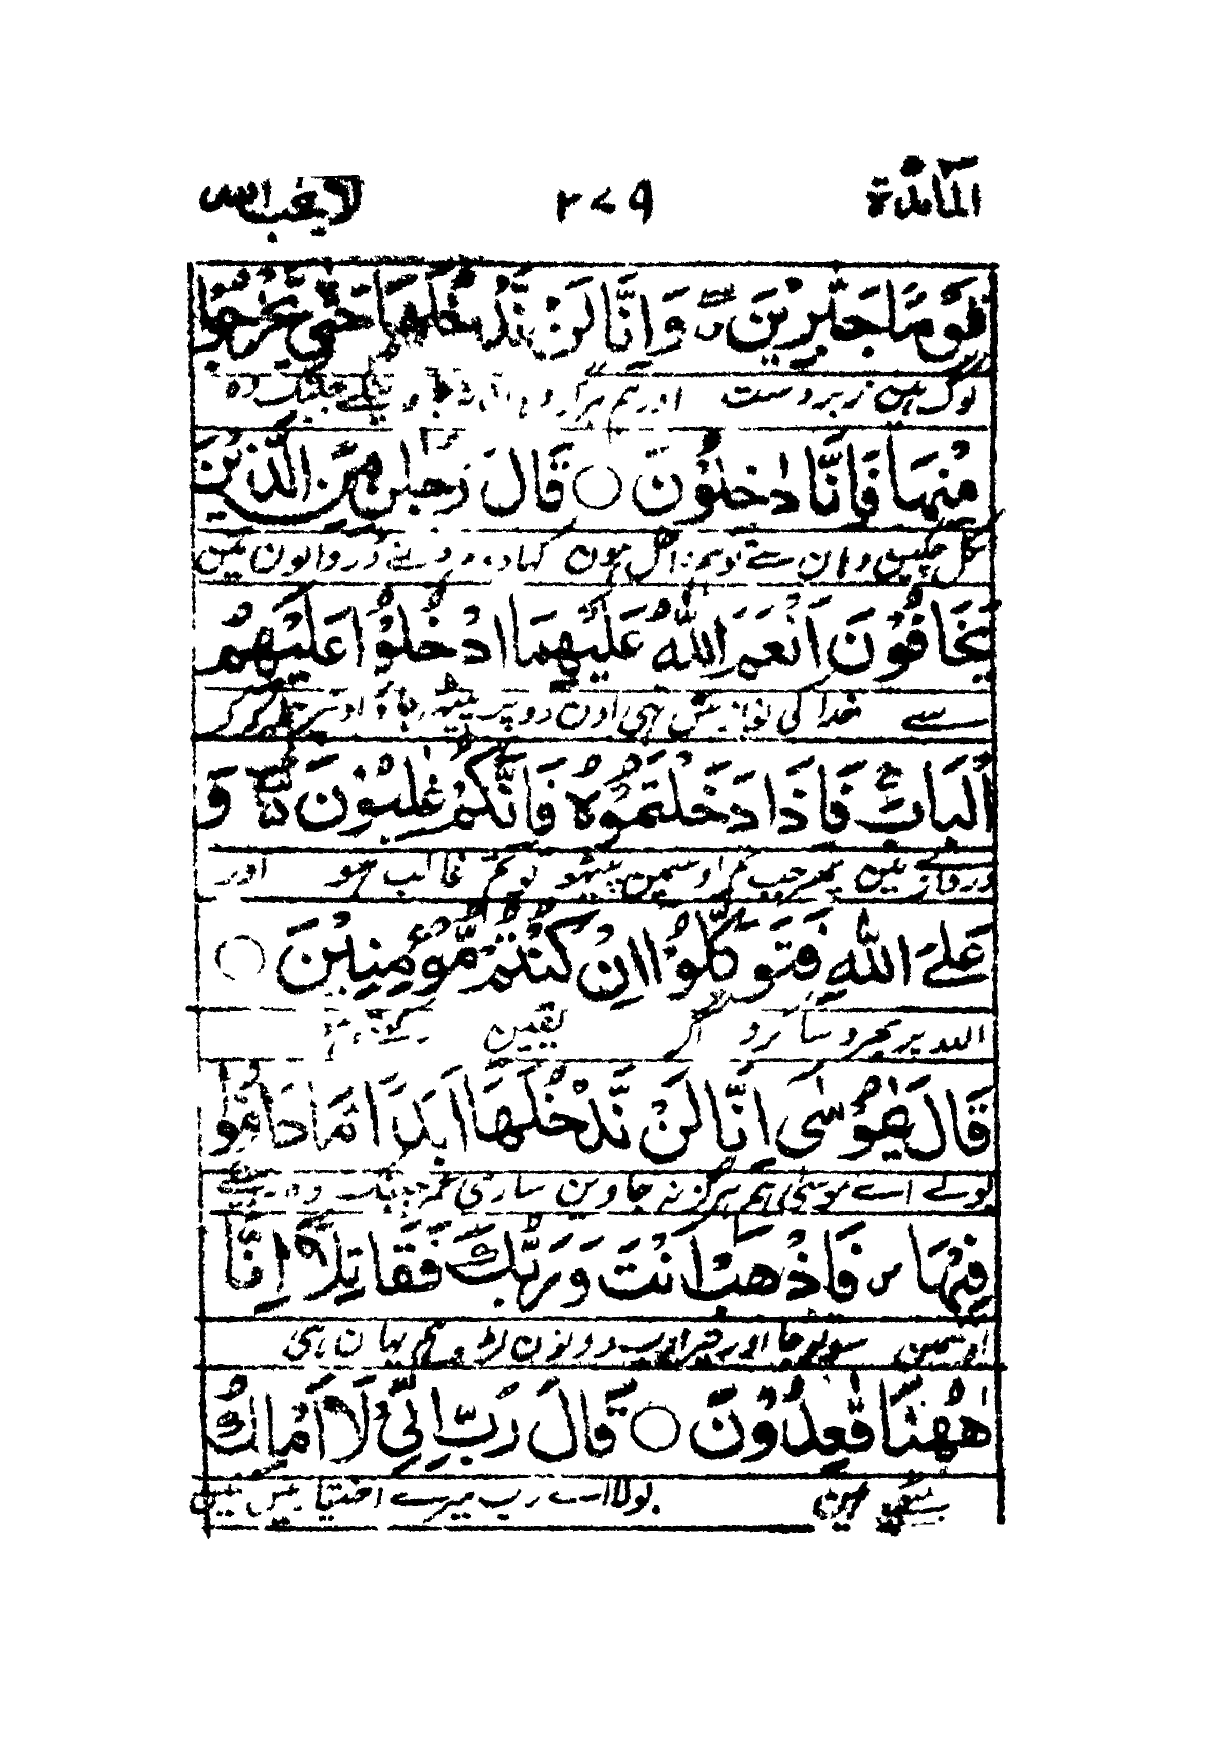 المائدة ٢٧٩ لا يحب الله
قَوْمًا جَبَّارِيْنَ وَاِنَّا لَنْ نَّدْخُلَهَا حَتّٰى يَخْرُجُوْا
لوگ ہیں زبردست اور ہم ہرگز جب تک وہ
مِنْهَا فَاِنَّا دٰخِلُوْنَ ○ قَالَ رَجُلٰنِ مِنَ الَّذِيْنَ
نکل چکیں وہان سے تو ہم داخل ہون کہا دو مرد نے ڈر والون مین
يَخَافُوْنَ اَنْعَمَ اللّٰهُ عَلَيْهِمَا ادْخُلُوْا عَلَيْهِمُ
سے خدا کی نوازش تہی اون دو پر پیٹھ جاؤ اونپر حملہ کر کر
الْبَابَ فَاِذَا دَخَلْتُمُوْهُ فَاِنَّكُمْ غٰلِبُوْنَ وَ
دروازے مین پھر جب تم اوسمین پیٹھو تو تم غالب ہو اور
عَلَى اللّٰهِ فَتَوَكَّلُوْا اِنْ كُنْتُمْ مُّؤْمِنِيْنَ ○
اللہ پر بھروسا کرو اگر یقین رکھتے ہو
قَالُوْا يٰمُوْسٰى اِنَّا لَنْ نَّدْخُلَهَا اَبَدًا مَّا دَامُوْا
بولے اے موسٰی ہم ہرگز نہ جاوین ساری عمر جب تک وہ رہینگے
فِيْهَا فَاذْهَبْ اَنْتَ وَرَبُّكَ فَقَاتِلَا اِنَّا
اوسمین سو تو جا اور تیرا رب دونون لڑو ہم یہان ہی
هٰهُنَا قٰعِدُوْنَ ○ قَالَ رَبِّ اِنِّىْ لَا اَمْلِكُ
بیٹھے ہین بولا اے رب میرے اختیار مین نہین